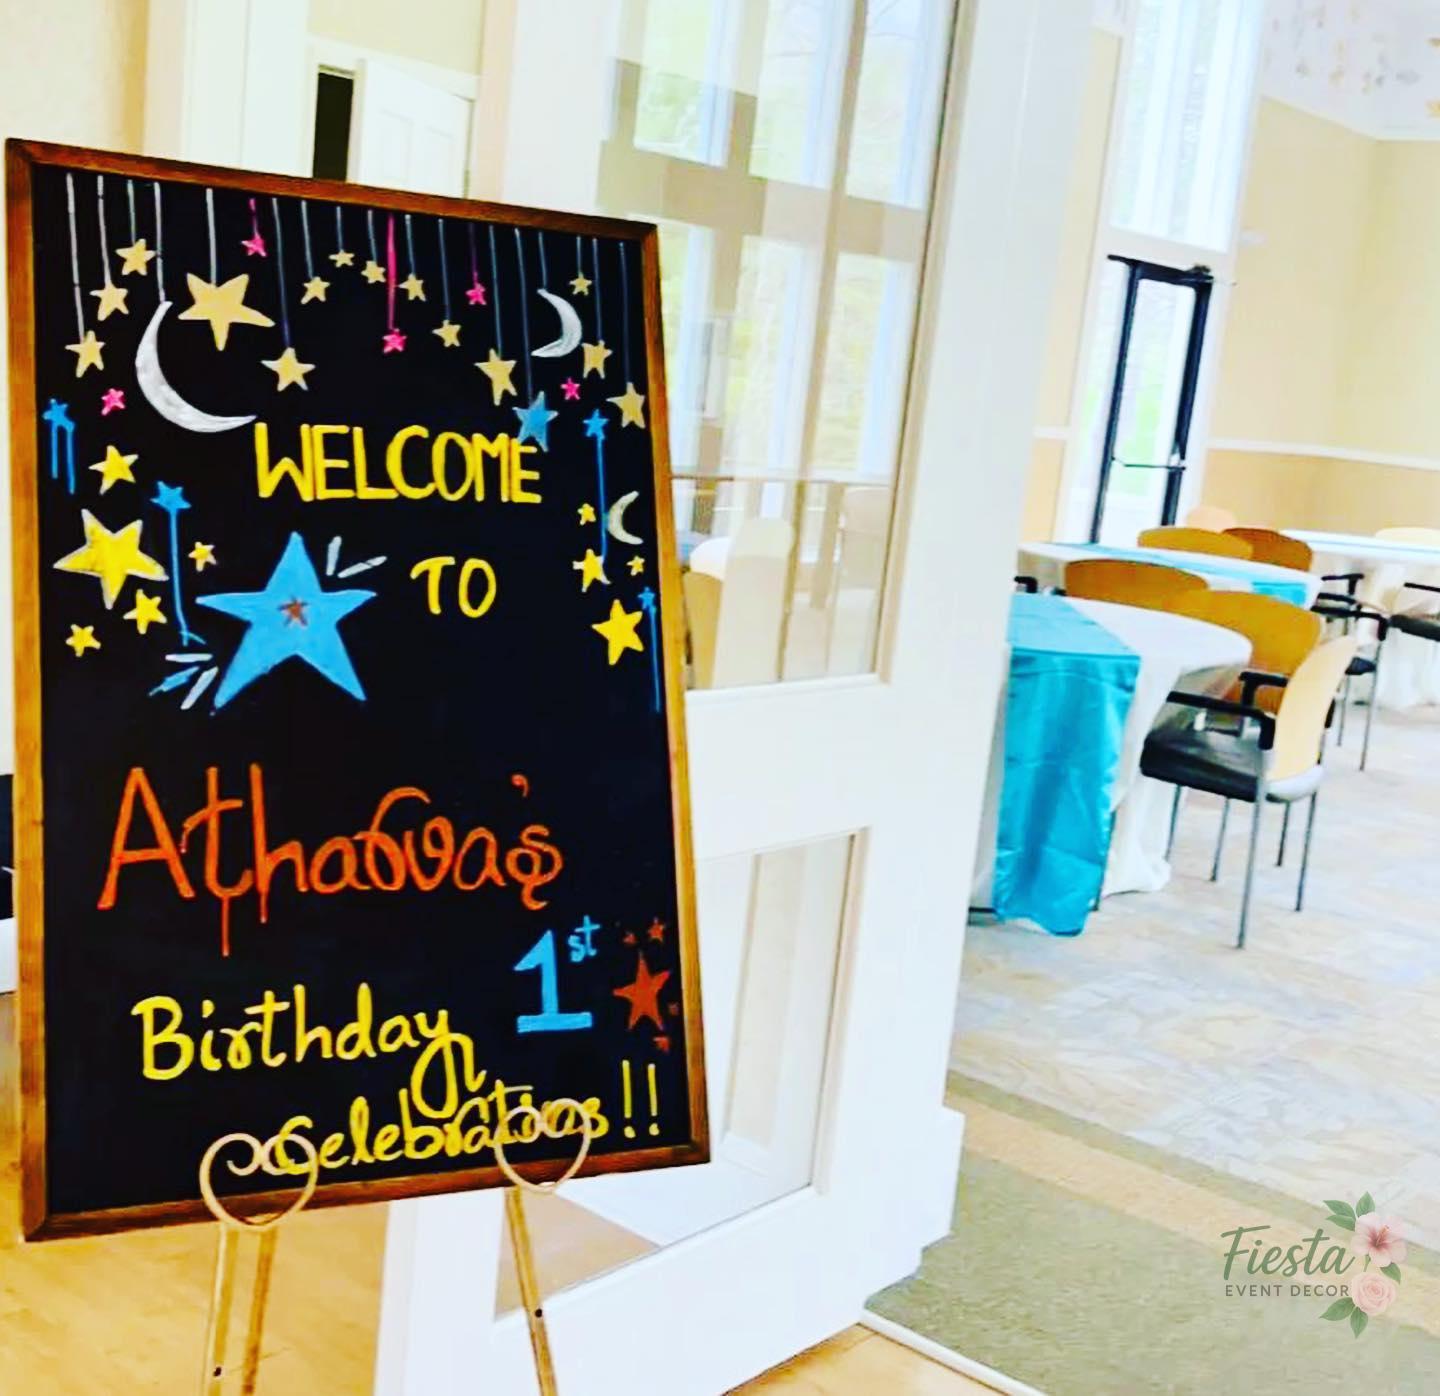 WELCOME
TO
Atharva's
1st
Birthday
Celebrations!!
Fiesta
EVENT DECOR